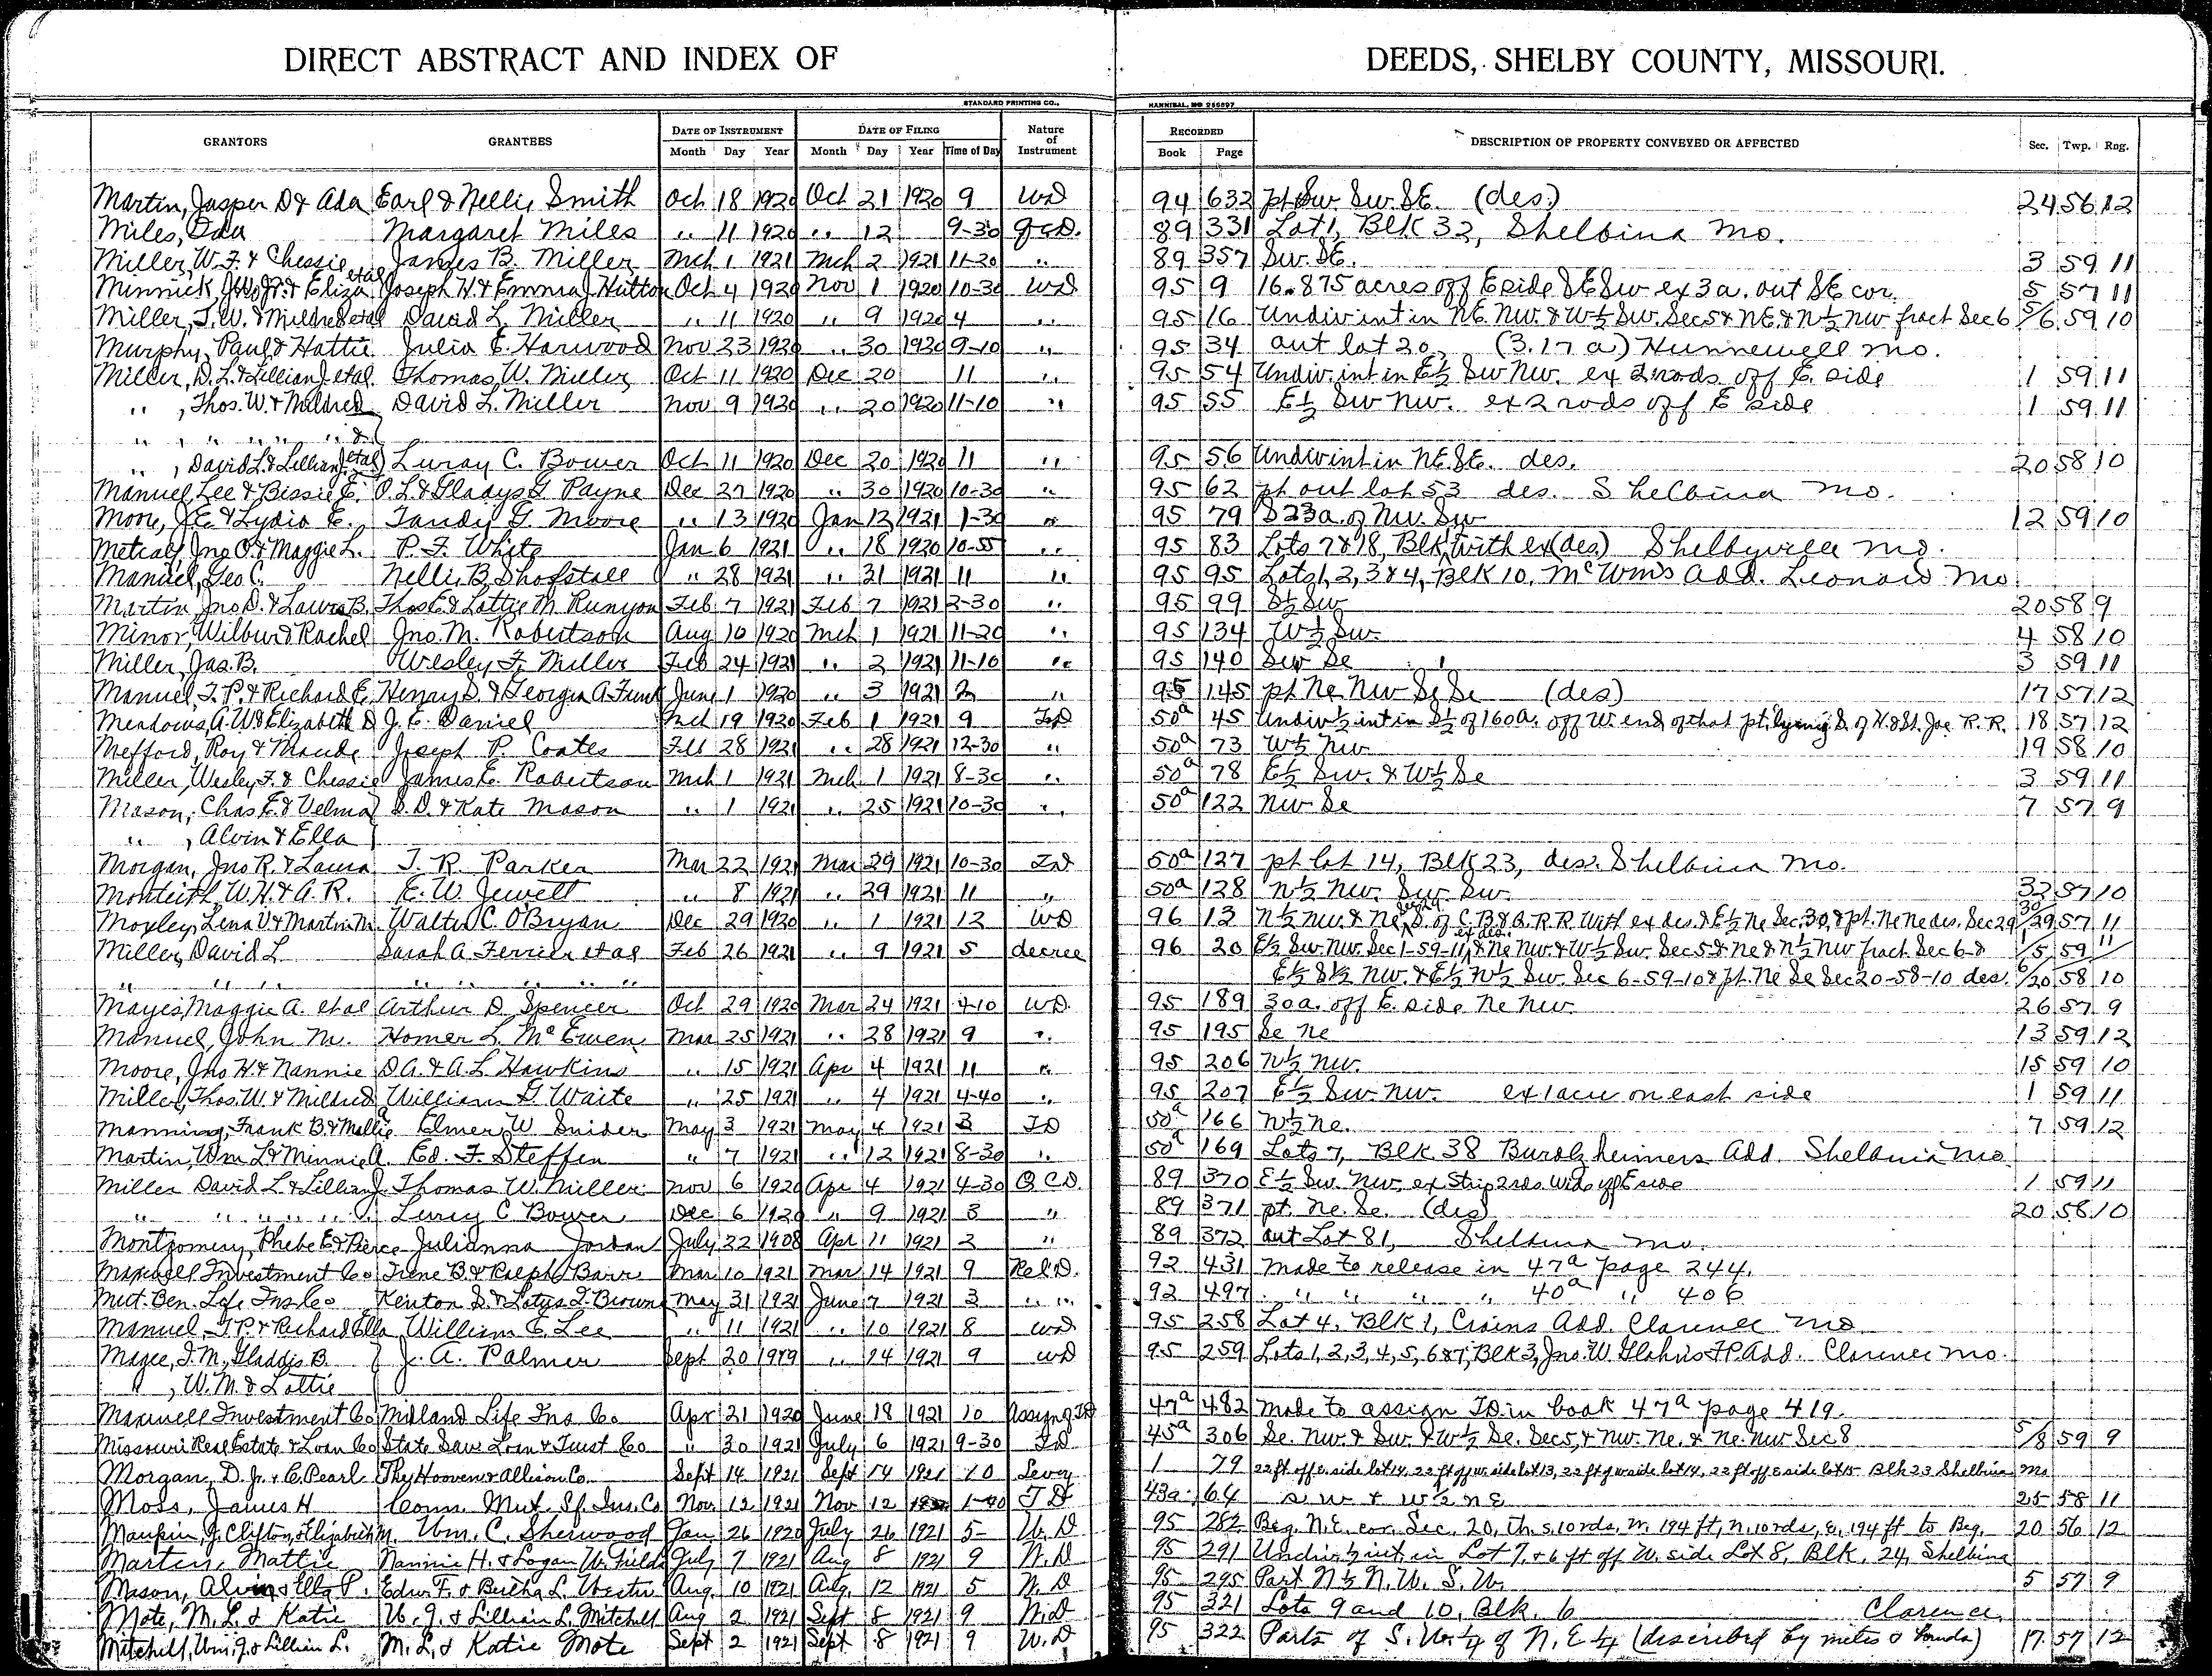 DIRECT ABSTRACT AND INDEX OF DEEDS, SHELBY COUNTY, MISSOURI.
STANDARD PRINTING CO., HANNIBAL, MO 255897
GRANTORS GRANTEES DATE OF INSTRUMENT DATE OF FILING Nature of Instrument RECORDED DESCRIPTION OF PROPERTY CONVEYED OR AFFECTED Sec. Twp. Rng.
Month Day Year Month Day Year Time of Day Book Page
Martin, Jasper D & Ada Earl & Nellie Smith Oct 18 1920 Oct 21 1920 9 WD 94 632 pt Sw Sw. SE. (des.) 24 56 12
Miles, Oda Margaret Miles " 11 1920 " 12 9-30 QCD. 89 331 Lot 1, Blk 32, Shelbina Mo.
Miller, W. F. & Chessie James B. Miller Mch 1 1921 Mch 2 1921 11-30 " 89 357 Sw. SE. 3 59 11
Minnick, Jno. Jr. & Eliza etal Joseph H. & Emma J Hutton Oct 4 1920 Nov 1 1920 10-30 WD 95 9 16.875 acres off E side SE Sw ex 3 a. out SE cor. 5 57 11
Miller, T. W. & Mildred etal David L. Miller " 11 1920 " 9 1920 4 " 95 16 Undiv int in NE. NW. & W½ Sw. Sec 5 & NE & N½ NW fract Sec 6 5/6 59 10
Murphy, Paul & Hattie Julia E. Harwood Nov 23 1920 " 30 1920 9-10 " 95 34 out lot 20, (3.17 a) Hunnewell Mo.
Miller, D. L. & Lillian J. etal. Thomas W. Miller Oct 11 1920 Dec 20 11 " 95 54 Undiv. int in E½ Sw Nw. ex 2 rods off E. side 1 59 11
" , Thos. W. & Mildred David L. Miller Nov 9 1920 " 20 1920 11-10 " 95 55 E½ Sw Nw. ex 2 rods off E side 1 59 11
" " " " " &
" , David L. & Lillian J. etal Luray C. Bower Oct 11 1920 Dec 20 1920 11 " 95 56 Undiv int in NE. SE. des. 20 58 10
Manuel, Lee & Bissie E. O. L. & Gladys G Payne Dec 27 1920 " 30 1920 10-30 " 95 62 pt out lot 53 des. Shelbina Mo.
Moore, J. E. & Lydia E. Tandy G. Moore " 13 1920 Jan 12 1921 1-30 " 95 79 S 23 a. of Nw. Sw 12 59 10
Metcalf, Jno. O. & Maggie L. P. F. White Jan 6 1921 " 18 1920 10-55 " 95 83 Lots 7 & 18, Blk with ex (des) Shelbyville Mo.
Manuel, Geo C. Nellie B. Shofstall " 28 1921 " 31 1921 11 " 95 95 Lots 1, 2, 3 & 4, Blk 10, McWms Add. Leonard Mo
Martin, Jno D. & Laura B. Thos E & Lottie M. Runyon Feb 7 1921 Feb 7 1921 2-30 " 95 99 S½ Sw 20 58 9
Minor, Wilbur & Rachel Jno. M. Robertson Aug 10 1920 Mch 1 1921 11-20 " 95 134 W½ Sw. 4 58 10
Miller, Jas. B. Wesley F. Miller Feb 24 1921 " 2 1921 11-10 " 95 140 Sw Se 3 59 11
Manuel, T. P. & Richard E. Henry S. & Georgia A Funk June 1 1920 " 3 1921 2 " 95 145 pt Ne Nw Se Se (des) 17 57 12
Meadows, A. W & Elizabeth D J. E. Daniel Oct 19 1920 Feb 1 1921 9 TD 50a 45 Undiv ½ int in S½ of 160 a. off W. end of that pt lying S. of H. & St. Joe R. R. 18 57 12
Mefford, Roy & Maude Joseph P. Coates Feb 28 1921 " 28 1921 12-30 " 50a 73 W½ Nw 19 58 10
Miller, Wesley F. & Chessie James E. Robertson Mch 1 1921 Mch 1 1921 8-30 " 50a 78 E½ Sw. & W½ Se 3 59 11
Mason, Chas E. & Velma S. D. & Kate Mason " 1 1921 " 25 1921 10-30 " 50a 122 Nw Se 7 57 9
" , Alvin & Ella
Morgan, Jno R. & Laura T. R. Parker Mar 22 1921 Mar 29 1921 10-30 TD 50a 127 pt lot 14, Blk 23, des. Shelbina Mo.
Monteith, W. H. & A. R. E. W. Jewell " 8 1921 " 29 1921 11 " 50a 128 N½ Nw. Sw. Sw. 32 57 10
Moxley, Lena V & Martin M. Walter C. O'Bryan Dec 29 1920 " 1 1921 12 WD 96 13 N½ Nw. & Ne, S. of C. B & Q. R. R. With ex des & E½ Ne Sec. 30, & pt. Ne Ne des. Sec 29 30/29 57 11
Miller, David L Sarah A Ferrier et al Feb 26 1921 " 9 1921 5 decree 96 20 E½ Sw. Nw. Sec 1-59-11, & Ne Nw. & W½ Sw. Sec 5 & Ne & N½ Nw fract. Sec 6-& 1/5 59 11
" " " " " " E½ S½ Nw. & E½ N½ Sw. Sec 6-59-10 & pt. Ne Se Sec 20-58-10 des. 6/20 58 10
Mayes, Maggie A. et al Arthur D. Spencer Oct 29 1920 Mar 24 1921 4-10 WD. 95 189 30 a. off E. side Ne Nw. 26 57 9
Manuel, John M. Homer L. McEwen Mar 25 1921 " 28 1921 9 " 95 195 Se Ne 13 59 12
Moore, Jno H. & Nannie D A. & A. L Hawkins " 15 1921 Apr 4 1921 11 " 95 206 N½ Nw. 15 59 10
Miller, Thos. W. & Mildred William G. Waite " 25 1921 " 4 1921 4-40 " 95 207 E½ Sw Nw. ex 1 acre on east side 1 59 11
Manning, Frank B. & Mollie Elmer W. Snider May 3 1921 May 4 1921 3 TD 50a 166 N½ Ne. 7 59 12
Martin, Wm L. & Minnie A. Ed. F. Steffen " 7 1921 " 12 1921 8-30 " 50a 169 Lots 7, Blk 38 Burckheimers Add. Shelbina Mo.
Miller David L & Lillian J. Thomas W. Miller Nov 6 1920 Apr 4 1921 4-30 Q C D. 89 370 E½ Sw. Nw. ex Strip 2 rds. wide off E side 1 59 11
" " " " " Luray C. Bower Dec 6 1920 " 9 1921 3 " 89 371 pt. Ne. Se. (des) 20 58 10
Montgomery, Phebe E & Pierce Julianna Jordan July 22 1908 Apr 11 1921 2 " 89 372 out Lot 81, Shelbina Mo.
Maxwell Investment Co Irene B. & Ralph Barr Mar 10 1921 Mar 14 1921 9 Rel D. 92 431 Made to release in 47a page 244.
Mut. Ben. Life Ins Co Kenton D. & Lotys L. Brown May 31 1921 June 7 1921 3 " " 92 497 " " " " 40a " 406
Manuel, T. P. & Richard Ella William E. Lee " 11 1921 " 10 1921 8 WD 95 258 Lot 4, Blk 1, Crains Add. Clarence Mo
Magee, I. M., Gladdis B. J. A. Palmer Sept 20 1919 " 14 1921 9 WD 95 259 Lots 1, 2, 3, 4, 5, 6 & 7, Blk 3, Jno. W. Add. Clarence Mo.
" , W. M. & Lottie
Maxwell Investment Co Midland Life Ins Co Apr 21 1920 June 18 1921 10 Assign TD 47a 482 Made to assign TD in book 47a page 419.
Missouri Real Estate & Loan Co State Sav. Loan & Trust Co " 30 1921 July 6 1921 9-30 TD 45a 306 Se. Nw. & Sw. & W½ Se. Sec 5, & Nw. Ne. & Ne. Nw Sec 8 5/8 59 9
Morgan, D. Jr. & C. Pearl The Hooven & Allison Co. Sept 14 1921 Sept 14 1921 10 Levey 1 79 22 ft off E. side lot 14, 22 ft off W side lot 13, 22 ft off W side lot 14, 22 ft off E side lot 15 Blk 23 Shelbina Mo
Moss, James H Conn. Mut. Lf. Ins. Co Nov. 12 1921 Nov 12 1-40 T D 43a 64 S. W & W½ N E 25 58 11
Maupin, J. Clifton, Elizabeth M. Wm. C. Sherwood Jan 26 1920 July 26 1921 5- W. D 95 282 Beg. N. E. cor. Sec. 20, th. s. 10 rds, w. 194 ft, n. 10 rds, e. 194 ft to Beg. 20 56 12
Martin, Mattie Nannie H. & Logan W. Fields July 7 1921 Aug 8 1921 9 W. D 95 291 Undiv ½ int in Lot 7, & 6 ft off W. side Lot 8, Blk. 24, Shelbina
Mason, Alvin & Ella P. Edw. F. & Bertha L. Aug. 10 1921 Aug. 12 1921 5 W. D 95 295 Part N½ N. W. S. W. 5 57 9
Mote, M. L. & Katie W. J. & Lillian L. Mitchell Aug 2 1921 Sept 8 1921 9 W. D 95 321 Lots 9 and 10, Blk. 6 Clarence,
Mitchell, Wm. J. & Lillian L. M. L. & Katie Mote Sept 2 1921 Sept 8 1921 9 W. D 95 322 Parts of S. W. ¼ of N. E ¼ (described by metes & bounds) 17 57 12